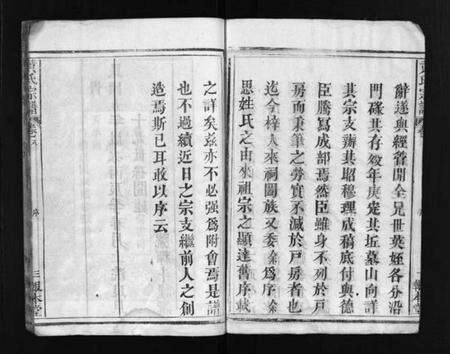 辭遂與經督聞全兄世英姪各分沿
門碌其存歿年庚覓其坵墓山向詳
其宗支辨其昭穆理成稿底付與德
臣騰寫成部焉然臣雖身不列於戶
房而秉筆之勞實不減於戶房者也
迄今梓人來祠闔族又委余為序余
思姓氏之由來祖宗之顯達舊序載
之詳矣茲亦不必強為附會焉是譜
也不過續近日之宗支繼前人之創
造焉斯已耳敢以序云
氏宗譜
序
三
堂